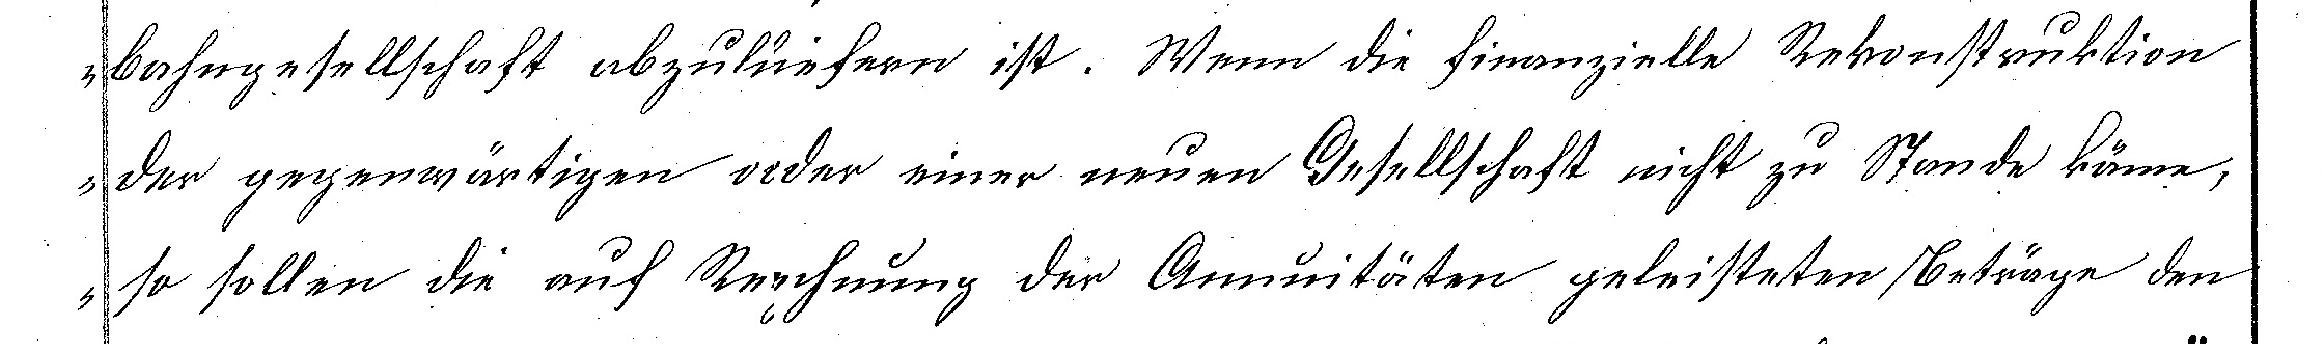 "bahngesellschaft abzuliefern ist. Wenn die finanzielle Rekonstruktion
"der gegenwärtigen oder einer neuen Gesellschaft nicht zu Stande käme,
"so sollen die auf Rechnung der Annuitäten geleisteten Beträge den